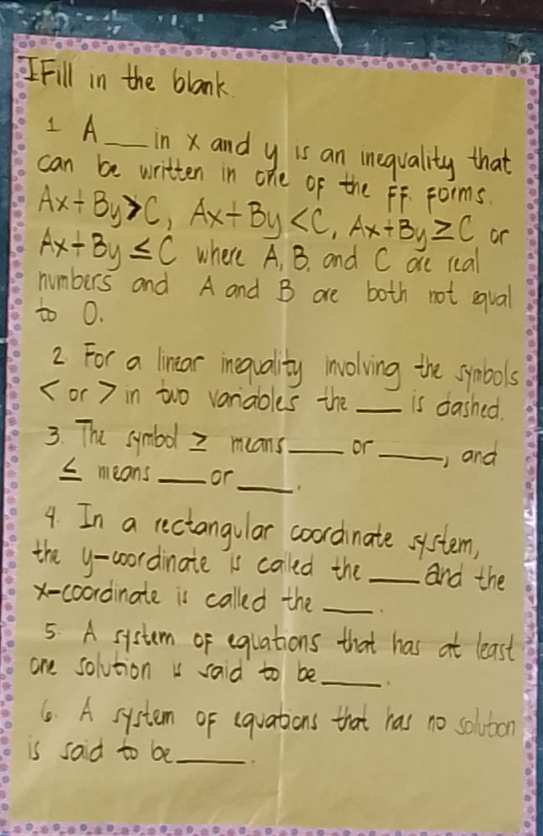 I Fill in the blank.
1. A ___ in x and y is an inequality that
can be written in one of the ff. forms.
Ax + By > C, Ax + By < C, Ax + By ≥ C or
Ax + By ≤ C where A, B, and C are real
numbers and A and B are both not equal
to 0.
2. For a linear inequality involving the symbols
< or > in two variables the ___ is dashed.
3. The symbol ≥ means ___ or ___, and
≤ means ___ or ___.
4. In a rectangular coordinate system,
the y-coordinate is called the ___ and the
x-coordinate is called the ___.
5. A system of equations that has at least
one solution is said to be ___.
6. A system of equations that has no solution
is said to be ___.